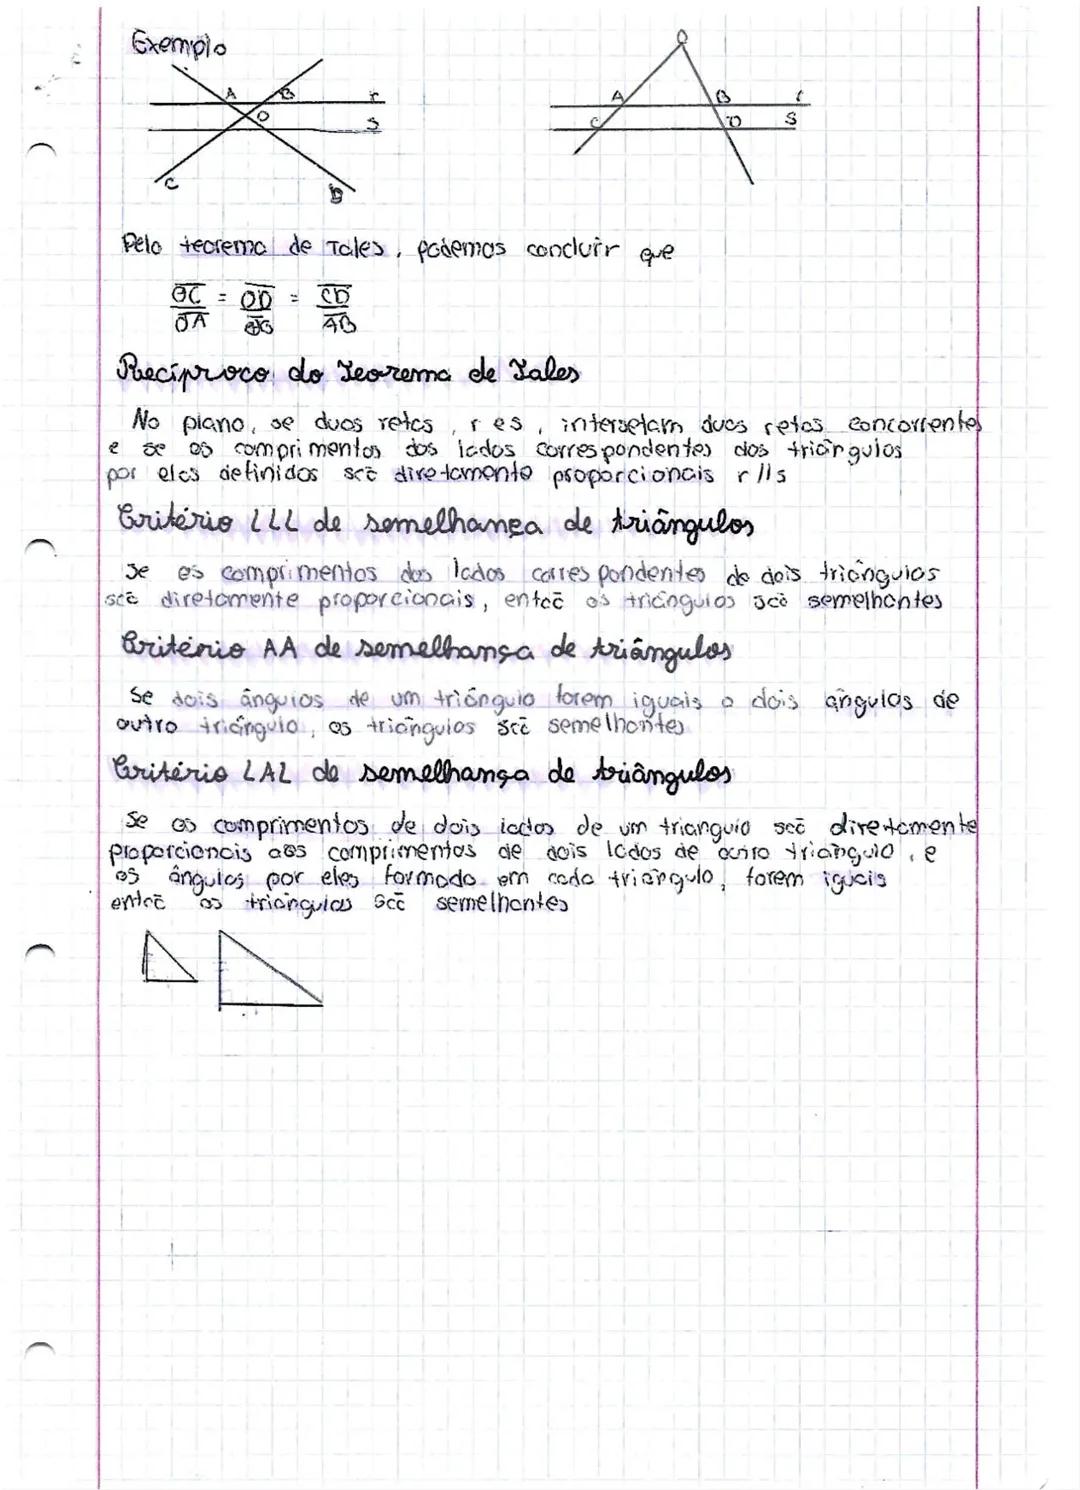 Exemplo
A B r
O S
C D
O
A B r
C D S
Pelo teorema de Tales, podemos concluir que
OC/OA = OD/OB = CD/AB
Recíproco do Teorema de Tales
No plano, se duas retas, r e s, intersetam duas retas concorrentes
e se os comprimentos dos lados correspondentes dos triângulos
por eles definidos são diretamente proporcionais r//s
Critério LLL de semelhança de triângulos
Se os comprimentos dos lados correspondentes de dois triângulos
são diretamente proporcionais, então os triângulos são semelhantes
Critério AA de semelhança de triângulos
Se dois ângulos de um triângulo forem iguais a dois ângulos de
outro triângulo, os triângulos são semelhantes
Critério LAL de semelhança de triângulos
Se os comprimentos de dois lados de um triangulo são diretamente
proporcionais aos comprimentos de dois lados de outro triângulo, e
os ângulos por eles formado em cada triângulo, forem iguais
então os triângulos são semelhantes